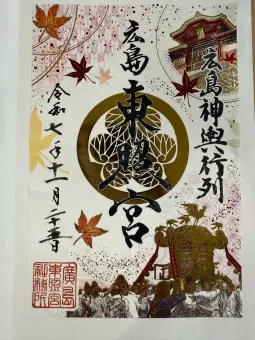 広島神輿行列
広島
東照宮
令和七年十一月二十五日
廣島
東照宮
社務所